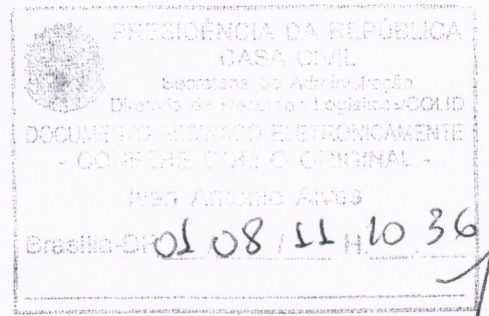 PRESIDÊNCIA DA REPÚBLICA
CASA CIVIL
Secretaria de Administração
Diretoria de Recursos Logísticos/COLID
DOCUMENTO ASSINADO ELETRONICAMENTE
- CONFERE COM O ORIGINAL -
Ivan Antonio Alves
Brasília-DF 01 08 / 11 H. 10 36